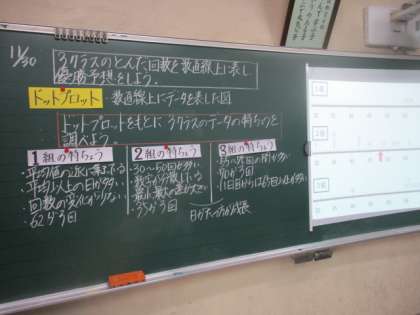 11/30
3クラスのとんだ回数を数直線上に表し、
優勝予想をしよう。
ドットプロット・数直線上にデータを表した図
ドットプロットをもとに3クラスのデータの特ちょうを
調べよう
1組の特ちょう
・平均値の近くに集まってる
・平均以上の日が多い
・回数の変化が少ない
・62が3回
2組の特ちょう
・30〜50回が多い
・数字が分散している
・最小と最大の差が大きい
・55が3回
3組の特ちょう
・70が3回
日がたつ方が成長
1組
2組
3組